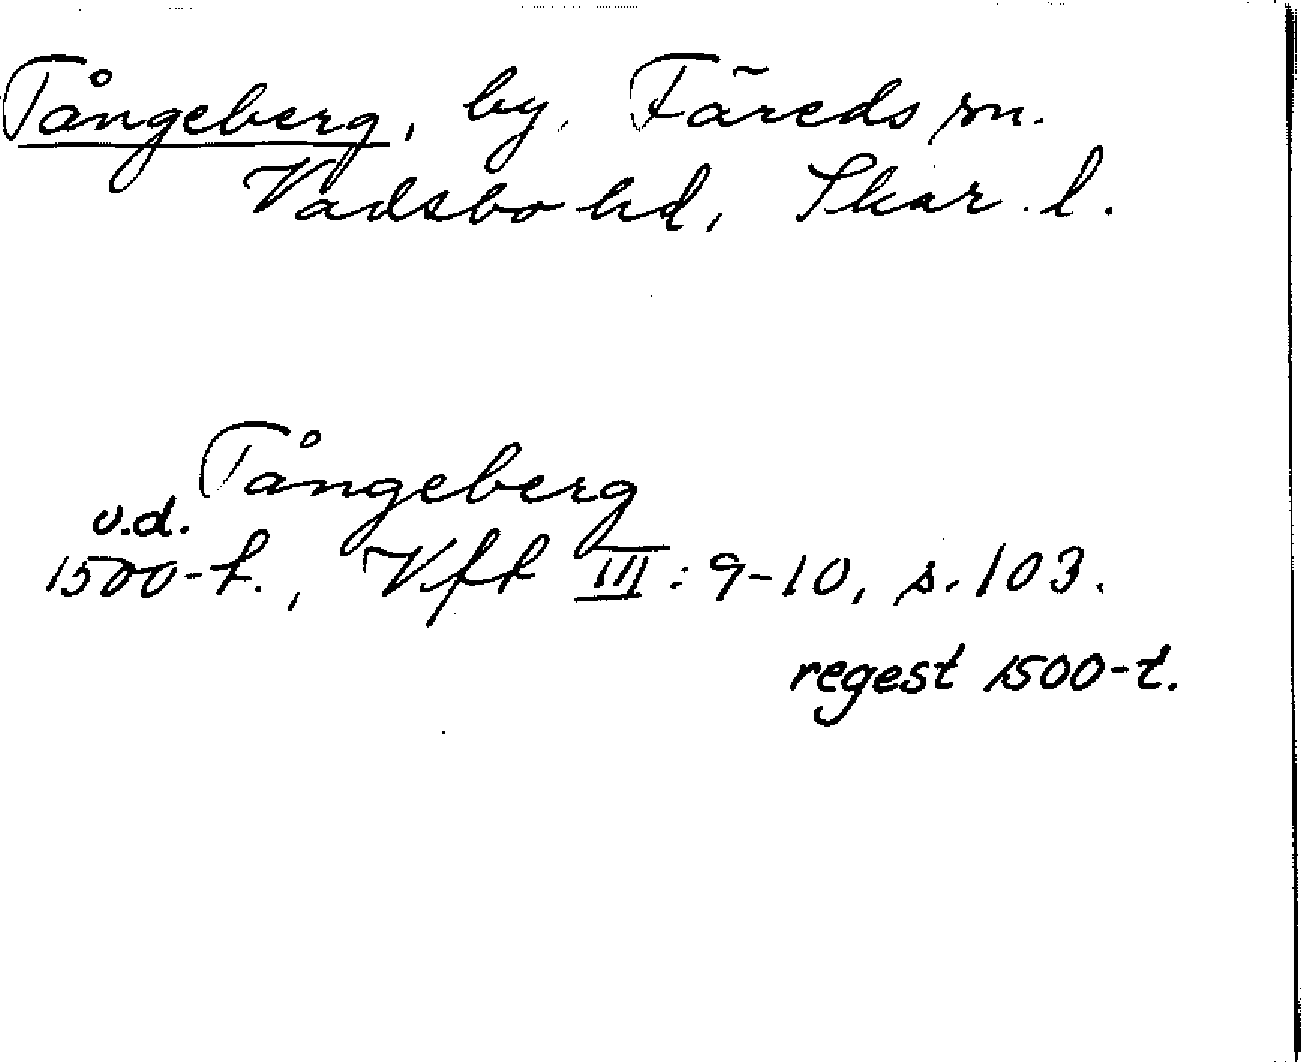 Tångeberg, by, Färeds sn.
Vadsbo hd, Skar. l.
Tångeberg
u.d.
1500-t., Vft III: 9-10, s. 103.
regest 1500-t.